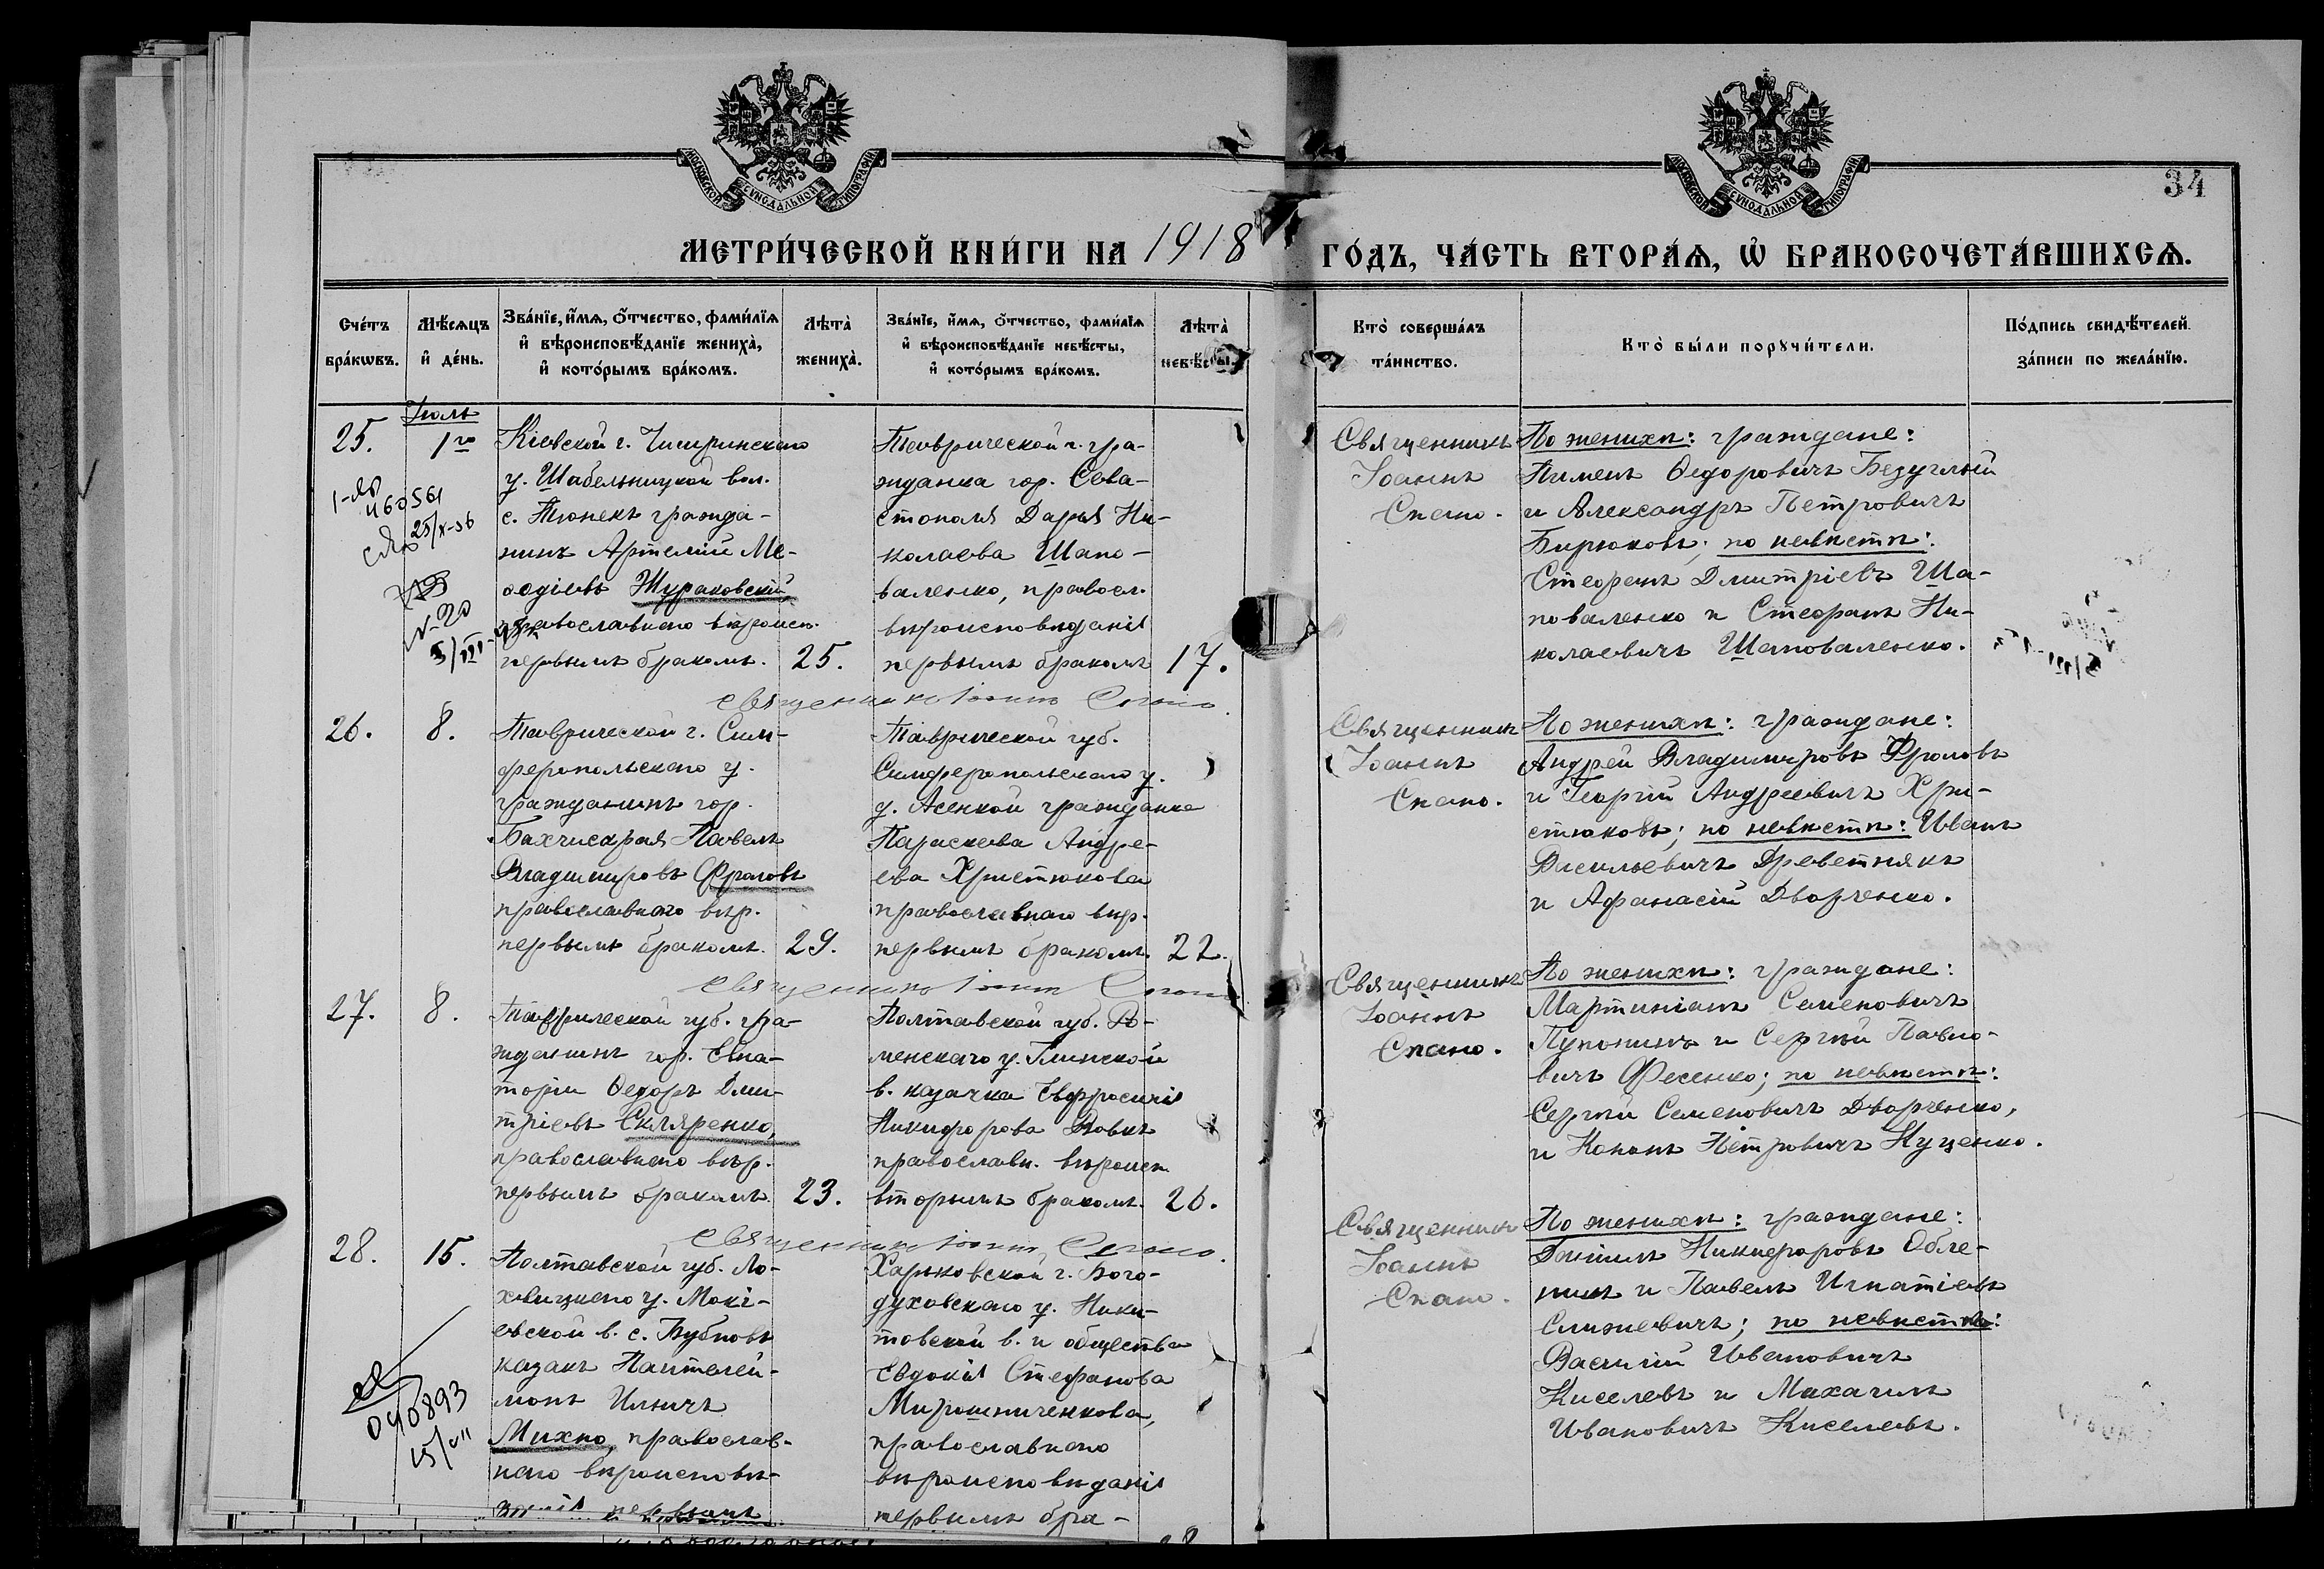 МОСКОВСКОЙ СѴНОДАЛЬНОЙ ТИПОГРАФІИ
МОСКОВСКОЙ СѴНОДАЛЬНОЙ ТИПОГРАФІИ
34
МЕТРИ́ЧЕСКОЙ КНИ́ГИ НА 1918 ГО́ДЪ, ЧА́СТЬ ВТОРА́Ѧ, Ѽ БРАКОСОЧЕТА́ВШИХСѦ.
Сче́тъ
бра́кѡвъ.
Мѣ́сѧцъ
и҆ де́нь.
Зва́нїе, и҆́мѧ, ѻ҆́тчество, фами́лїѧ
и҆ вѣроисповѣ́данїе жениха̀,
и҆ кото́рымъ бра́комъ.
Лѣта̀
жениха̀.
Зва́нїе, и҆́мѧ, ѻ҆́тчество, фами́лїѧ
и҆ вѣроисповѣ́данїе невѣ́сты,
и҆ кото́рымъ бра́комъ.
Лѣта̀
невѣ́сты.
Кто̀ соверша́лъ
та́инство.
Кто̀ бы́ли порꙋчи́тели.
По́дпись свидѣ́телей
за́писи по жела́нїю.
Іюль
25.
1го
Кіевской г. Чигиринскаго
у. Шабельницкой вол.
с. Тюнекъ гражда-
нинъ Артемій Ме-
ѳодіевъ Жураковскій,
православнаго вѣроисп.
первымъ бракомъ. 25.
Таврической г. гра-
жданка гор. Сева-
стополя Дарья Ни-
колаева Шапо-
валенко, правосл.
вѣроисповѣданія
первымъ бракомъ 17.
Священникъ
Іоаннъ
Спано.
По женихѣ: граждане:
Пименъ Ѳедоровичъ Безуглый
и Александръ Петровичъ
Бирюковъ; по невѣстѣ:
Стефанъ Дмитріевъ Ша-
поваленко и Стефанъ Ни-
колаевичъ Шаповаленко.
460561
25/X-36
священникъ Іоаннъ Спано.
26.
8.
Таврической г. Сим-
феропольскаго у.
гражданинъ гор.
Бахчисарая Павелъ
Владимировъ Фроловъ
православнаго вѣр.
первымъ бракомъ. 29.
Таврической губ.
Симферопольскаго у.
д. Асенкой гражданка
Параскева Андре-
ева Христюкова
православнаго вѣр.
первымъ бракомъ. 22.
Священникъ
Іоаннъ
Спано.
По женихѣ: граждане:
Андрей Владимировъ Фроловъ
и Георгій Андреевичъ Хри-
стюковъ; по невѣстѣ: Иванъ
Васильевичъ Древетнякъ
и Афанасій Дворченко.
священникъ Іоаннъ Спано
27.
8.
Таврической губ. гра-
жданинъ гор. Евпа-
торіи Ѳедоръ Дми-
тріевъ Скляренко,
православнаго вѣр.
первымъ бракомъ. 23.
Полтавской губ. Ро-
менскаго у. Глинской
в. казачка Евфросинія
Никифорова Вовкъ
православн. вѣроисп.
вторымъ бракомъ. 26.
Священникъ
Іоаннъ
Спано.
По женихѣ: граждане:
Мартиніанъ Семеновичъ
Пупонинъ и Сергѣй Павло-
вичъ Фесенко; по невѣстѣ:
Сергѣй Семеновичъ Дворченко,
и Кононъ Петровичъ Куценко.
священникъ Іоаннъ Спано.
28.
15.
Полтавской губ. Ло-
хвицкаго у. Мокі-
евской в. с. Бубновъ
казакъ Пантелей-
монъ Ильичъ
Михно, православ-
наго вѣроисповѣ-
данія первымъ
Харьковской г. Бого-
духовскаго у. Ники-
товской в. и общества
Евдокія Стефанова
Мирошниченкова,
православнаго
вѣроисповѣданія
первымъ бра-
Священникъ
Іоаннъ
Спано.
По женихѣ: граждане:
Даніилъ Никифоровъ Обле-
нинъ и Павелъ Игнатіевъ
Слижевичъ; по невѣстѣ:
Василій Ивановичъ
Киселевъ и Михаилъ
Ивановичъ Киселевъ.
040893
15/VII